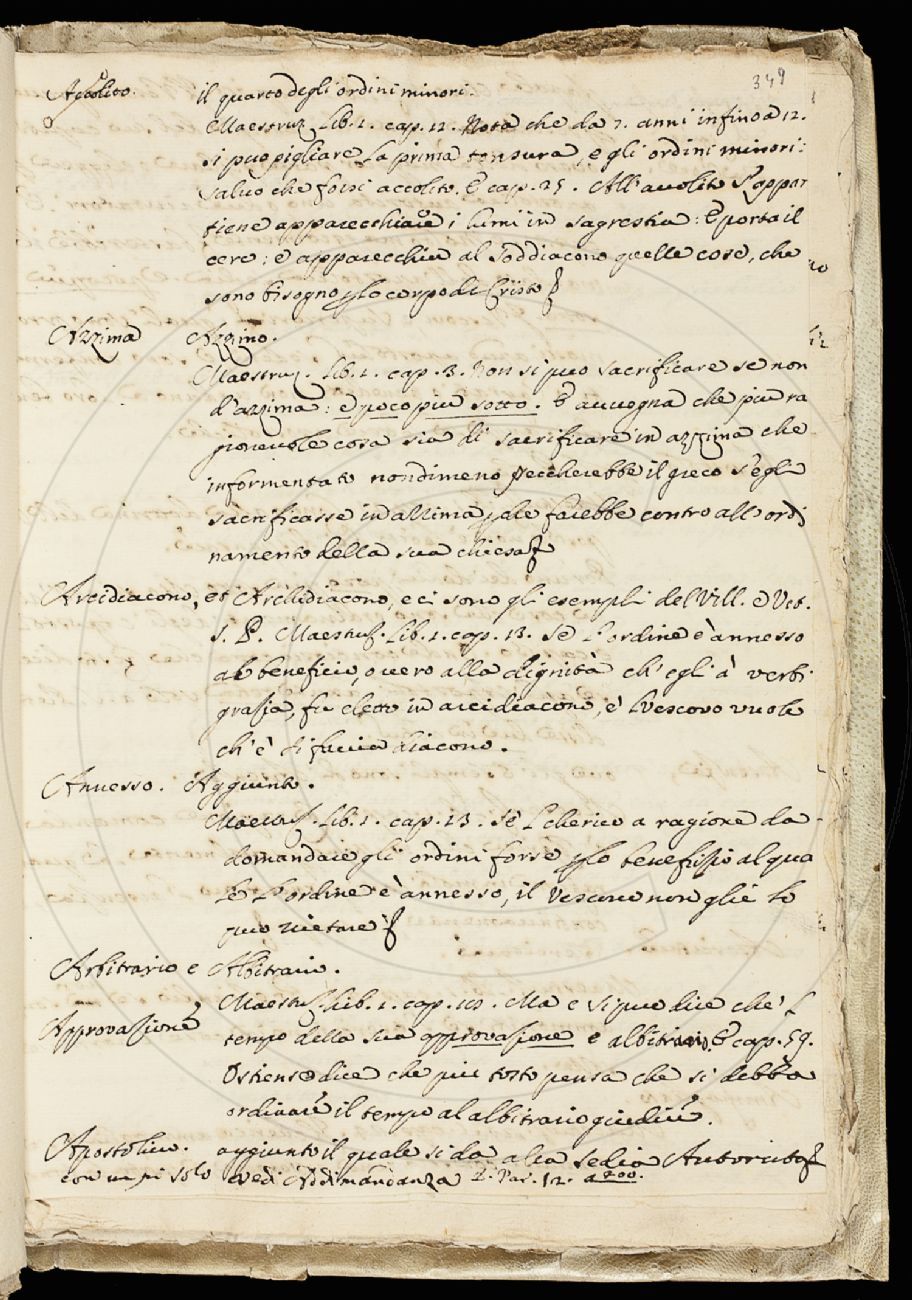 349
Accolito. il quarto degli ordini minori.
Maestruz. Lib. 1. cap. 12. Nota che da 7. anni infino a 12.
si puo pigliare la prima tonsura, e gli ordini minori:
salvo che forsi accolito. E cap. 25. All'accolito s'appar
tiene apparecchiare i lumi in sagrestia: E porta il
cero: e apparecchia al Soddiacono quelle cose, che
sono bisogno p lo corpo di Cristo
Azzima Azzimo.
Maestruz. Lib. 1. cap. 3. Non si puo sacrificare se non
d'azzima: e poco piu sotto. E avvegna che piu ra
gionevole cosa sia di sacrificare in azzima che
in formentato nondimeno peccherebbe il greco s'egli
sacrificasse in azzima p che farebbe contro all'ordi
namento della sua chiesa
Arcidiacono, et Archidiacono, e ci sono gli esempli del Vill. e Vit.
S. P. Maestruz. Lib. 1. cap. 13. Se l'ordine è annesso
al beneficio, overo alla dignità ch'egli à verbi
grazia, fu eletto in arcidiacono, e l vescovo vuole
ch'è si faccia diacono.
Annesso. Aggiunto.
Maestruz. Lib. 1. cap. 13. Se l cherico a ragione da
domandare gli ordini forse p lo benefizio al qua
le l'ordine è annesso, il Vescovo non glie lo
puo vietare
Arbitrario e Albitrario.
Maestruz. Lib. 1. cap. Ma e si puo dire che l
Approvazione tempo della sua approvazione e albitrario. E cap. 59.
Ostiense dice che piu tosto pensa che si debba
ordinare il tempo al albitrario giudicio.
Apostolico. aggiunto il quale si da alla sedia Autorità
con un pi solo vedi Addimandanza